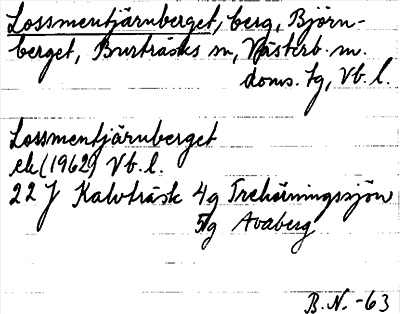 Lossmentjärnberget, berg, Björn-
berget, Burträsks sn, Västerb. m.
doms. tg, Vb. l.
Lossmentjärnberget
ek (1962) Vb. l.
22 J Kalvträsk 4g Trehörningssjön
5g Avaberg
B. N. -63